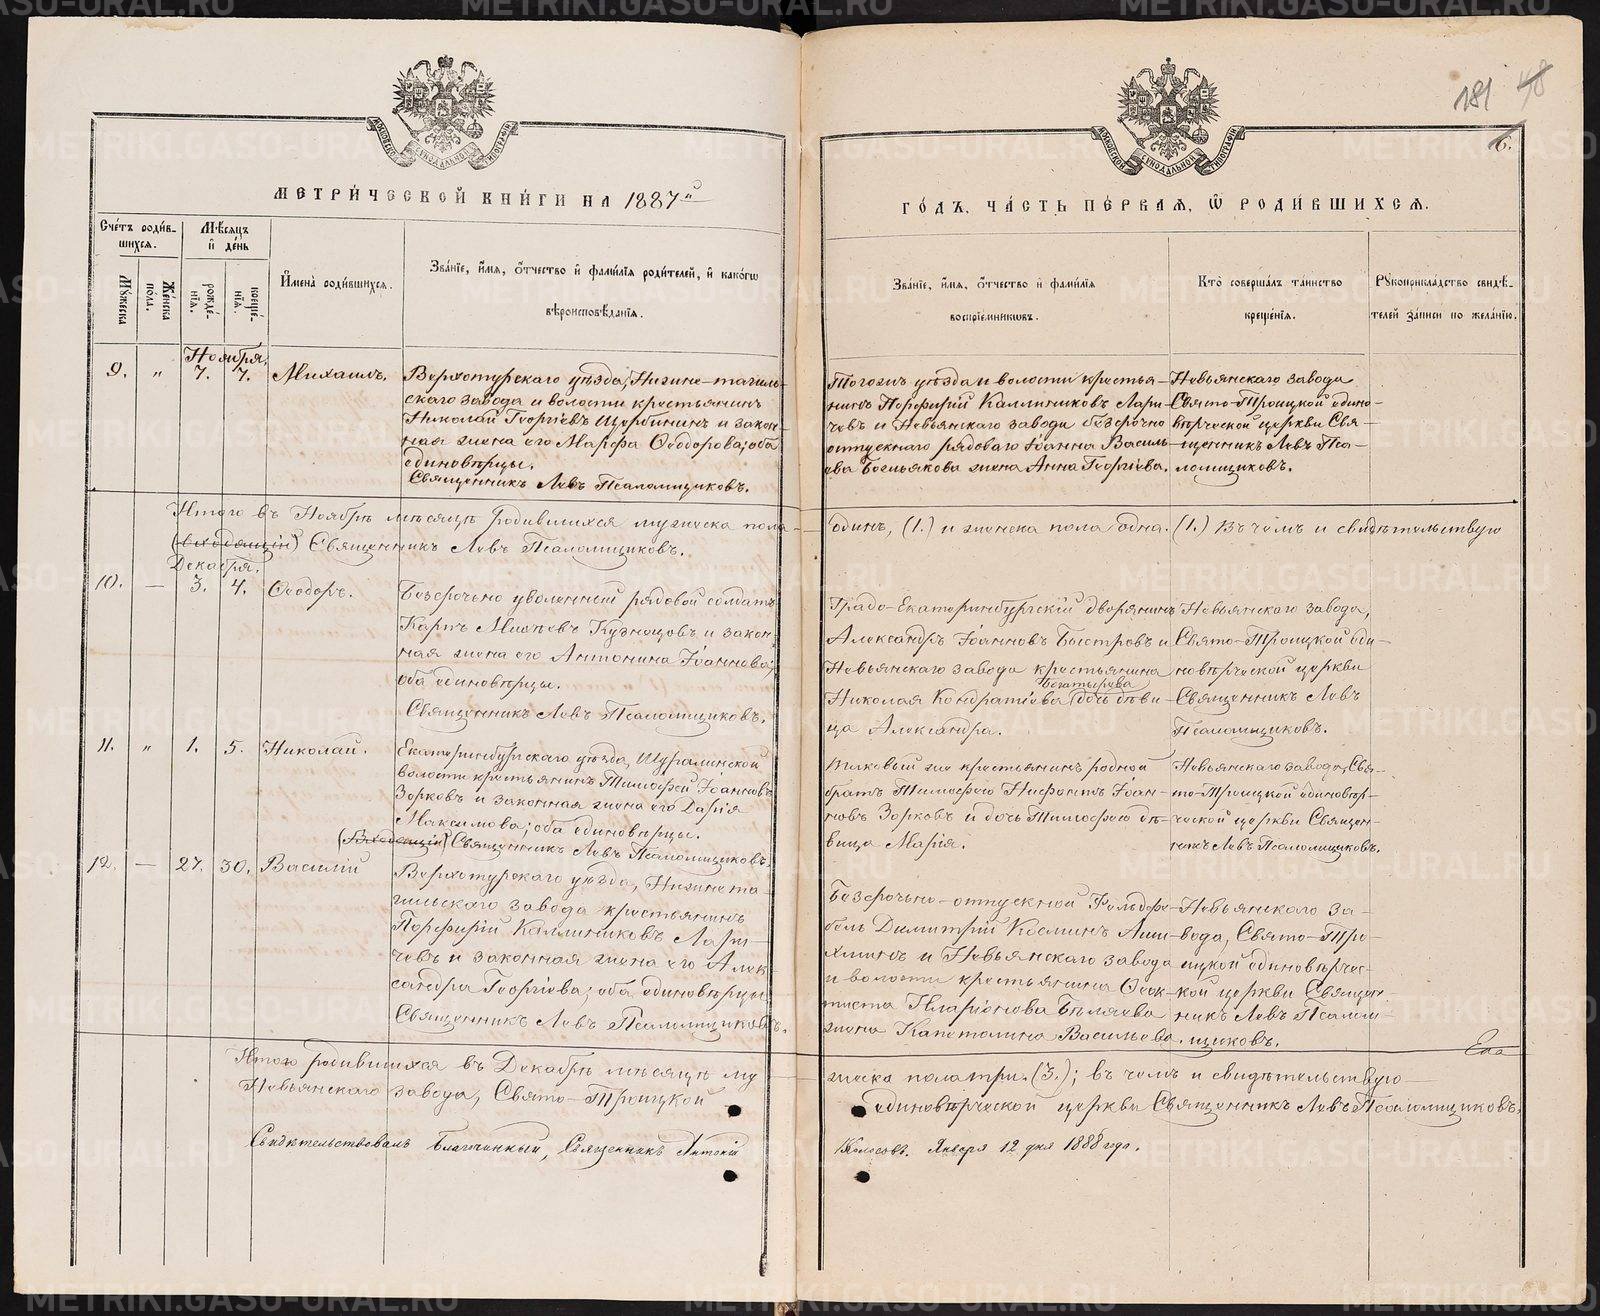 181 48
6.
МЕТРИ́ЧЕСКОЙ КНИ́ГИ НА 1887й
Сче́тъ роди́в-
шихсѧ.
Мѣ́сѧцъ
и҆ де́нь
Мꙋ́жеска
Же́нска
по́ла.
рожде́-
нїѧ.
креще́-
нїѧ.
И҆мена̀ роди́вшихсѧ.
Зва́нїе, и҆́мѧ, ѻ҆́тчество и҆ фами́лїѧ роди́телей, и҆ како́гѡ
вѣроисповѣ́данїѧ.
Ноября.
9. „ 7. 7. Михаилъ.
Верхотурскаго уѣзда, Нижне-тагиль-
скаго завода и волости крестьянинъ
Николай Георгіевъ Щербининъ и закон-
ная жена его Марѳа Ѳеодорова; оба
единовѣрцы.
Священникъ Левъ Псаломщиковъ.
Итого въ Ноябрѣ мѣсяцѣ родившихся мужеска пола
Священникъ Левъ Псаломщиковъ.
Декабря.
10. — 3. 4. Ѳеодоръ.
Безсрочно уволенный рядовой солдатъ
Карпъ Кузнецовъ и закон-
ная жена его Антонина Іоаннова;
оба единовѣрцы.
Священникъ Левъ Псаломщиковъ.
11. „ 1. 5. Николай.
Екатеринбургскаго уѣзда, Шуралинской
волости крестьянинъ Тимоѳей Іоанновъ
Зорковъ и законная жена его Дарія
Максимова; оба единовѣрцы.
Священникъ Левъ Псаломщиковъ.
12. — 27. 30. Василій
Верхотурскаго уѣзда, Нижнета-
гильскаго завода крестьянинъ
Порфирій Каллиниковъ Лари-
чевъ и законная жена его Алек-
сандра Георгіева; оба единовѣрцы
Священникъ Левъ Псаломщиковъ.
Итого родившихся въ Декабрѣ мѣсяцѣ му
Невьянскаго завода, Свято-Троицкой
Свидѣтельствовалъ Благочинный, Священникъ Антоній
ГО́ДЪ, ЧА́СТЬ ПЕ́РВАѦ, Ѽ РОДИ́ВШИХСѦ.
Зва́нїе, и҆́мѧ, ѻ҆́тчество и҆ фами́лїѧ
воспрїе́мникѡвъ.
Кто̀ соверша́лъ та́инство
креще́нїѧ.
Рꙋкоприкла́дство свидѣ́-
телей за́писи по жела́нїю.
Тогожъ уѣзда и волости крестья-
нинъ Порфирій Каллиниковъ Лари-
чевъ и Невьянскаго завода безсрочно
отпускнаго рядоваго Іоанна Василь-
ева жена Анна Георгіева.
Невьянскаго завода
Свято-Троицкой едино-
вѣрческой церкви Свя-
щенникъ Левъ Пса-
ломщиковъ.
одинъ, (1.) и женска пола одна. (1.) Въ чемъ и свидѣтельствую
Градо-Екатеринбургскій дворянинъ
Александръ Іоанновъ Быстровъ и
Невьянскаго завода крестьянина
Богатырева
Николая Кондратіева дочь дѣви-
ца Александра.
Невьянскаго завода,
Свято-Троицкой еди-
новѣрческой церкви
Священникъ Левъ
Псаломщиковъ.
Таковый же крестьянинъ родной
братъ Тимоѳея Нифонтъ Іоан-
новъ Зорковъ и дочь Тимоѳея дѣ-
вица Марія.
Невьянскаго завода, Свя-
то-Троицкой единовѣр-
ческой церкви Священ-
никъ Левъ Псаломщиковъ.
Безсрочно-отпускной Фельдфе-
бель Димитрій Космин
и Невьянскаго завода
и волости крестьянина Ѳеок-
тиста Иларіонова Бѣляева
жена Капетолина Васильева.
Невьянскаго за-
вода, Свято-Тро-
ицкой единовѣрчес-
кой церкви Священ-
никъ Левъ Псалом-
щиковъ.
жеска пола три. (3.); въ чемъ и свидѣтельствую
единовѣрческой церкви Священникъ Левъ Псаломщиковъ.
Колосовъ. Января 12 дня 1888 года.
METRIKI.GASO-URAL.RU